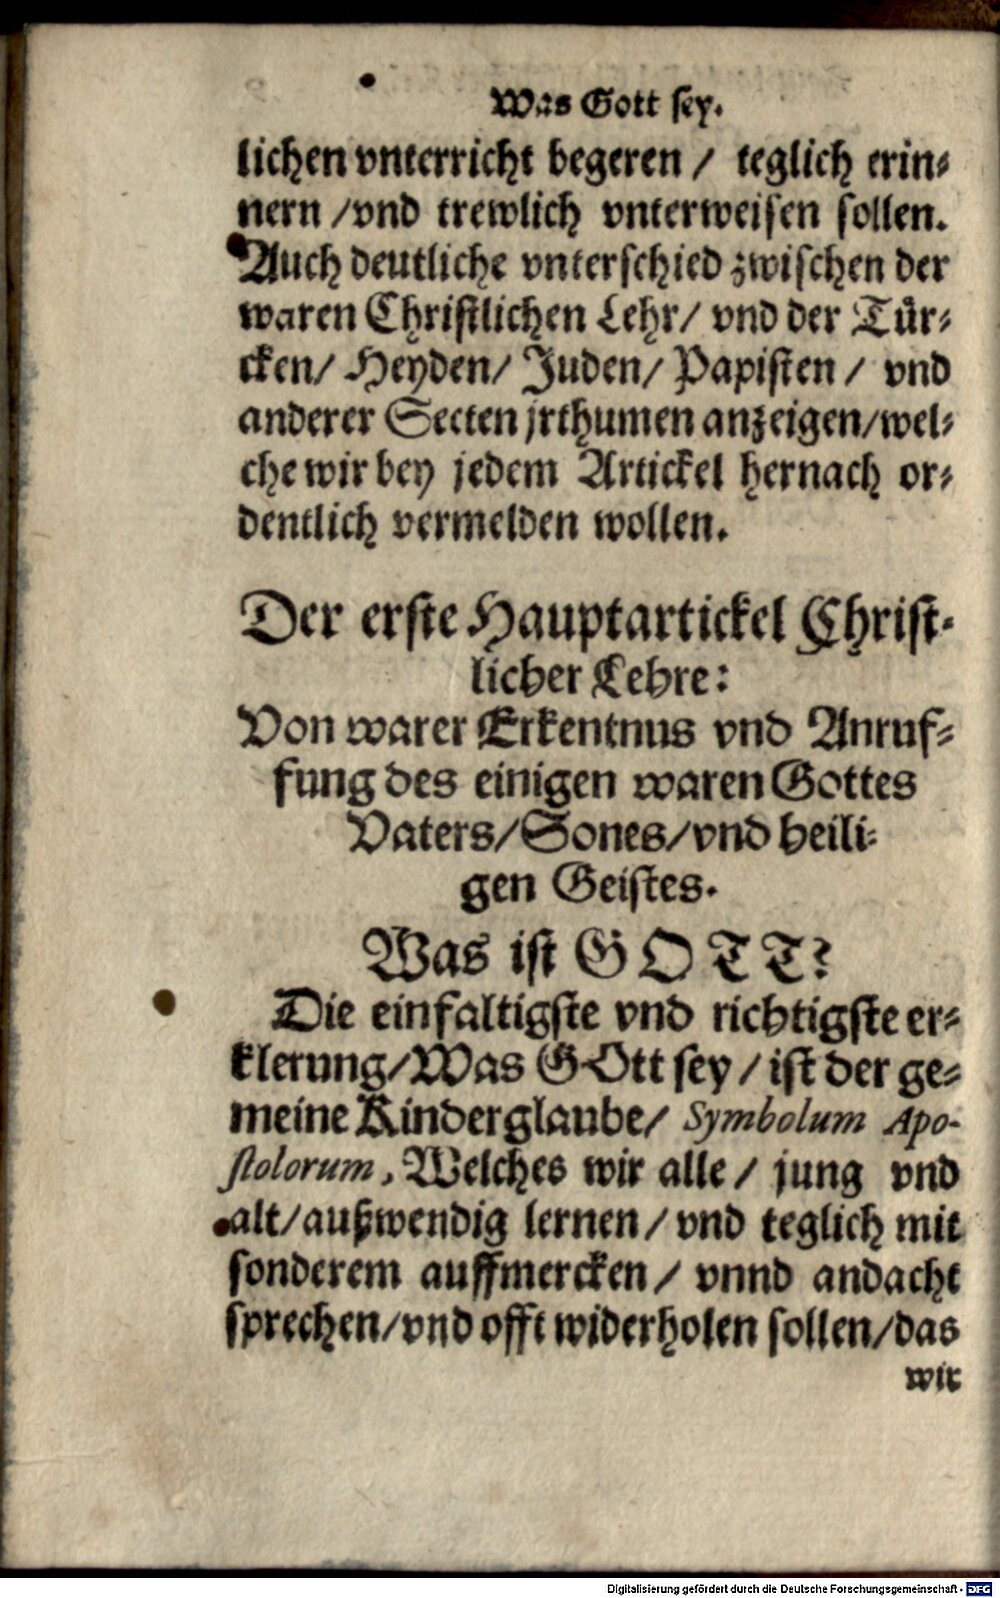 Was Gott sey.
lichen vnterricht begeren / teglich erin⸗
nern /vnd trewlich vnterweisen sollen.
Auch deutliche vnterschied zwischen der
waren Christlichen Lehr/ vnd der Tür⸗
cken/ Heyden/ Juden/ Papisten / vnd
anderer Secten jrthumen anzeigen/wel⸗
che wir bey jedem Artickel hernach or⸗
dentlich vermelden wollen.
Der erste Hauptartickel Christ⸗
licher Lehre:
Von warer Erkentnus vnd Anruf⸗
fung des einigen waren Gottes
Vaters/Sones/vnd heili⸗
gen Geistes.
Was ist GOTT?
Die einfaltigste vnd richtigste er⸗
klerung/Was GOtt sey / ist der ge⸗
meine Kinderglaube/ Symbolum Apo-
stolorum, Welches wir alle / jung vnd
alt/außwendig lernen / vnd teglich mit
sonderem auffmercken / vnnd andacht
sprechen/vnd offt widerholen sollen/das
wir
Digitalisierung gefördert durch die Deutsche Forschungsgemeinschaft - DFG